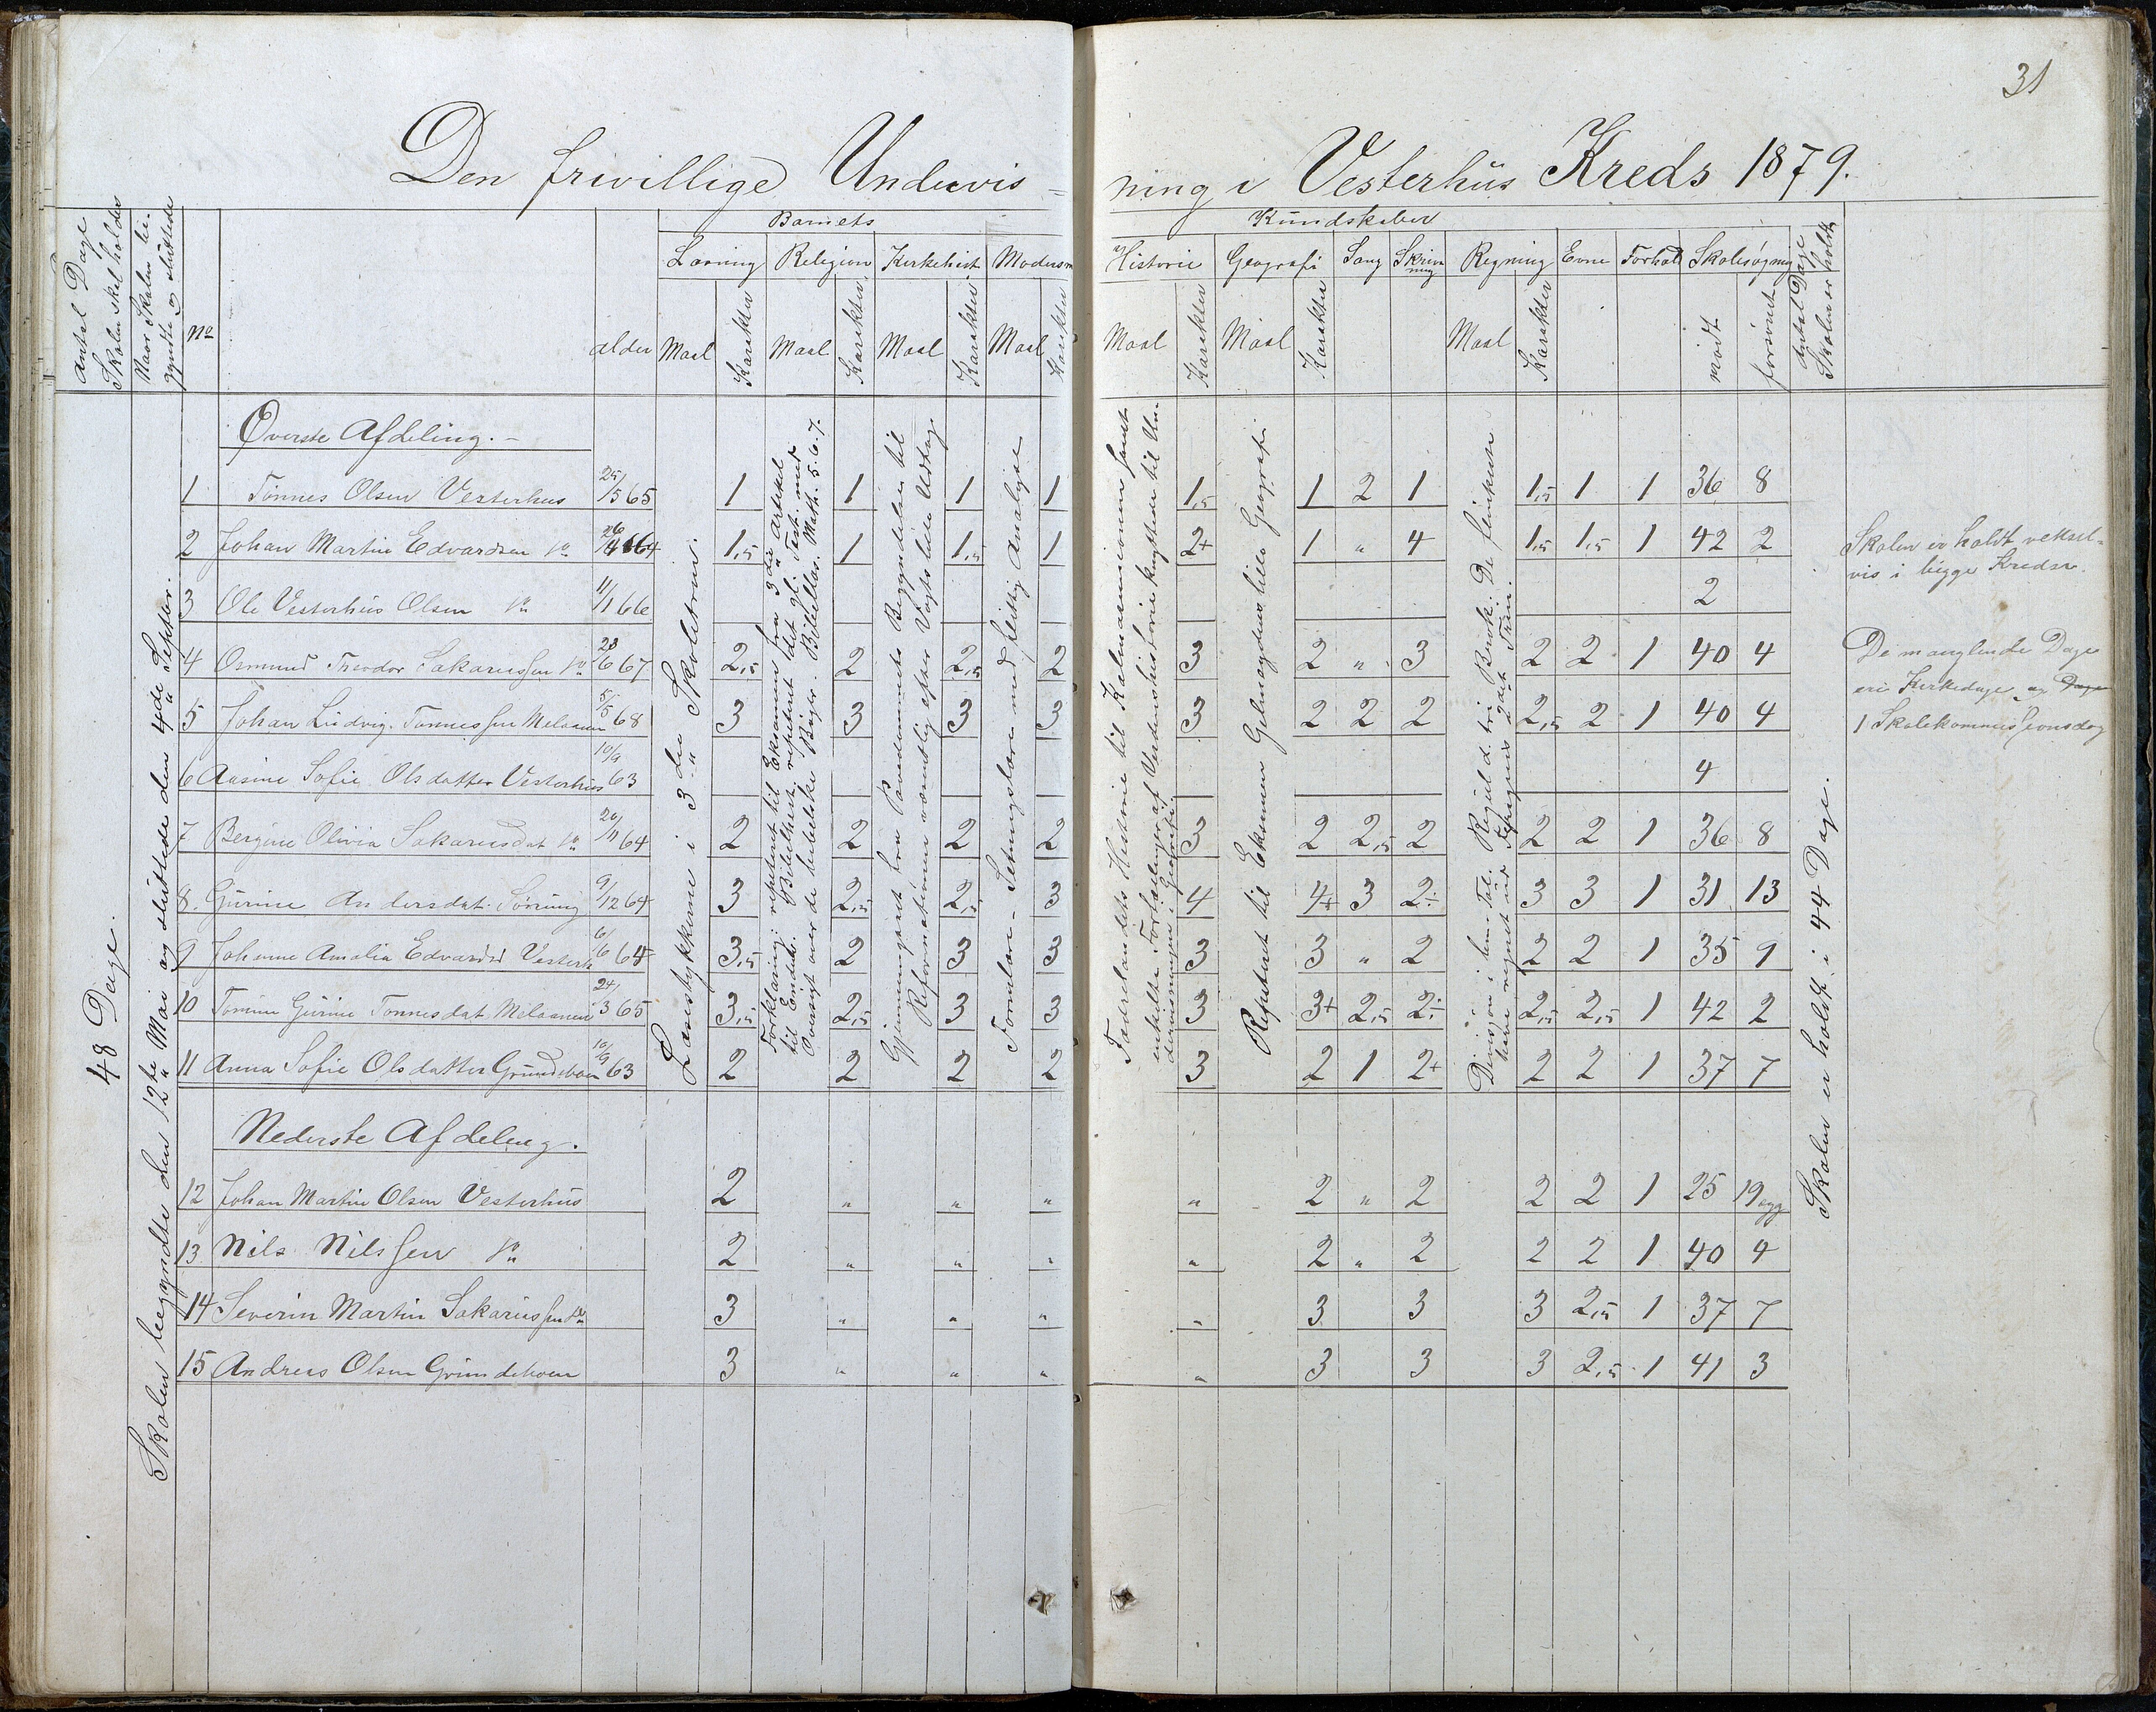 31
Den frivillige Undervis=
ning i Vesterhus Kreds 1879.
Antal Dage Skolen skal holdes
Naar Skolen begyndte og sluttede
No
alder
Barnets
Kundskaber
Læsning Religion Kirkehist Modersm
Historie Geografi Sang Skrivning Regning Evne Forhold Skolesøgning
Maal Karakter Maal Karakter Maal Karakter Maal Karakter
Maal Karakter Maal Karakter Maal Karakter mødt forsømt
Antal Dage Skolen er holdt
48 Dage.
Skolen begyndte den 12te Mai og sluttede den 4de Septbr.
Læsestykkerne i 3die Skoletrin.
Forklaring: repetert til Eksamen fra 3die Artikel
til Ende. Bibelhist. repetert det gl. Test. med
Oversigt over de bibelske Bøger. Bibellæs. Math. 5.6.7.
Gjennemgaaet fra Pavedømmets Begyndelse til
Reformationen mundtlig efter Vogts lille Udtog
Formlære - Setningslære med flittig Analyse
Fædrelandets Historie til Kalmarunionen samt
enkelte Fortællinger af Verdenshistorie knyttede til Undervisningen i Geografi.
Repetert til Eksamen Geelmuydens lille Geografi
Divisjon i ben. Tal. Regul d. tri Brøk. De flinkeste
have regnet ud Jespersens 2det Trin.
Skolen er holdt i 44 Dage.
Øverste Afdeling.-
1 Tønnes Olsen Vesterhus 25/5 65 1 1 1 1 1,5 1 2 1 1,5 1 1 36 8
2 Johan Martin Edvardsen do 26/4 64 1,5 1 1,5 1 2+ 1 " 4 1,5 1,5 1 42 2
3 Ole Vesterhus Olsen do 11/1 66 2
4 Osmund Theodor Sakariassen do 28/6 67 2,5 2 2,5 2 3 2 " 3 2 2 1 40 4
5 Johan Ludvig Tønnessen Melaanen 5/5 68 3 3 3 3 3 2 2 2 2,5 2 1 40 4
6 Aasine Sofie Olsdatter Vesterhus 10/9 63 4
7 Bergine Olivia Sakariasdat do 20/11 64 2 2 2 2 3 2 2,5 2 2 2 1 36 8
8. Gurine Andersdat. Sønning 9/12 64 3 2,5 2,5 3 4 4+ 3 2÷ 3 3 1 31 13
9 Johanne Amalia Edvardsd Vesterh 6/6 64 3,5 2 3 3 3 3 " 2 2 2 1 35 9
10 Tomine Gurine Tønnesdat Melaanen 24/3 65 3,5 2,5 3 3 3 3+ 2,5 2÷ 2,5 2,5 1 42 2
11 Anna Sofie Olsdatter Grundeboen 10/9 63 2 2 2 2 3 2 1 2+ 2 2 1 37 7
Nederste Afdeling.
12 Johan Martin Olsen Vesterhus 2 " " " " 2 " 2 2 2 1 25 19 syg
13 Nils Nilssen do 2 " " " " 2 " 2 2 2 1 40 4
14 Severin Martin Sakariassen do 3 " " " " 3 3 3 2,5 1 37 7
15 Andreas Olsen Grundeboen 3 " " " " 3 3 3 2,5 1 41 3
Skolen er holdt veksel=
vis i begge Kredse.
De manglende Dage
ere Kirkedage og Dage
1 Skolekommissionsdag